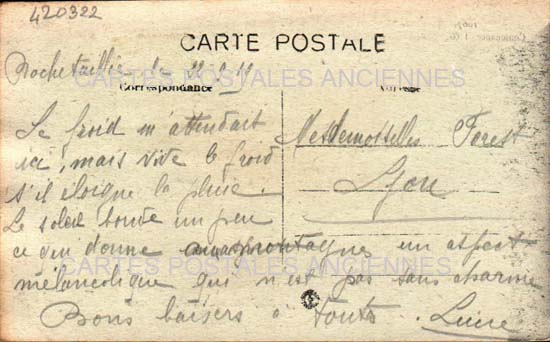 420322
CARTE POSTALE
Rochetaillée le
Correspondance
Adresse
CARTES POSTALES ANCIENNES
Le froid m'attendait
ici, mais vive le froid
s'il éloigne la pluie.
Le soleil boude un peu
ce qui donne aux montagnes un aspect
mélancolique qui n'est pas sans charme
Bons baisers à toutes. Lucie
Mesdemoiselles Forest
Lyon
CARTES POSTALES ANCIENNES